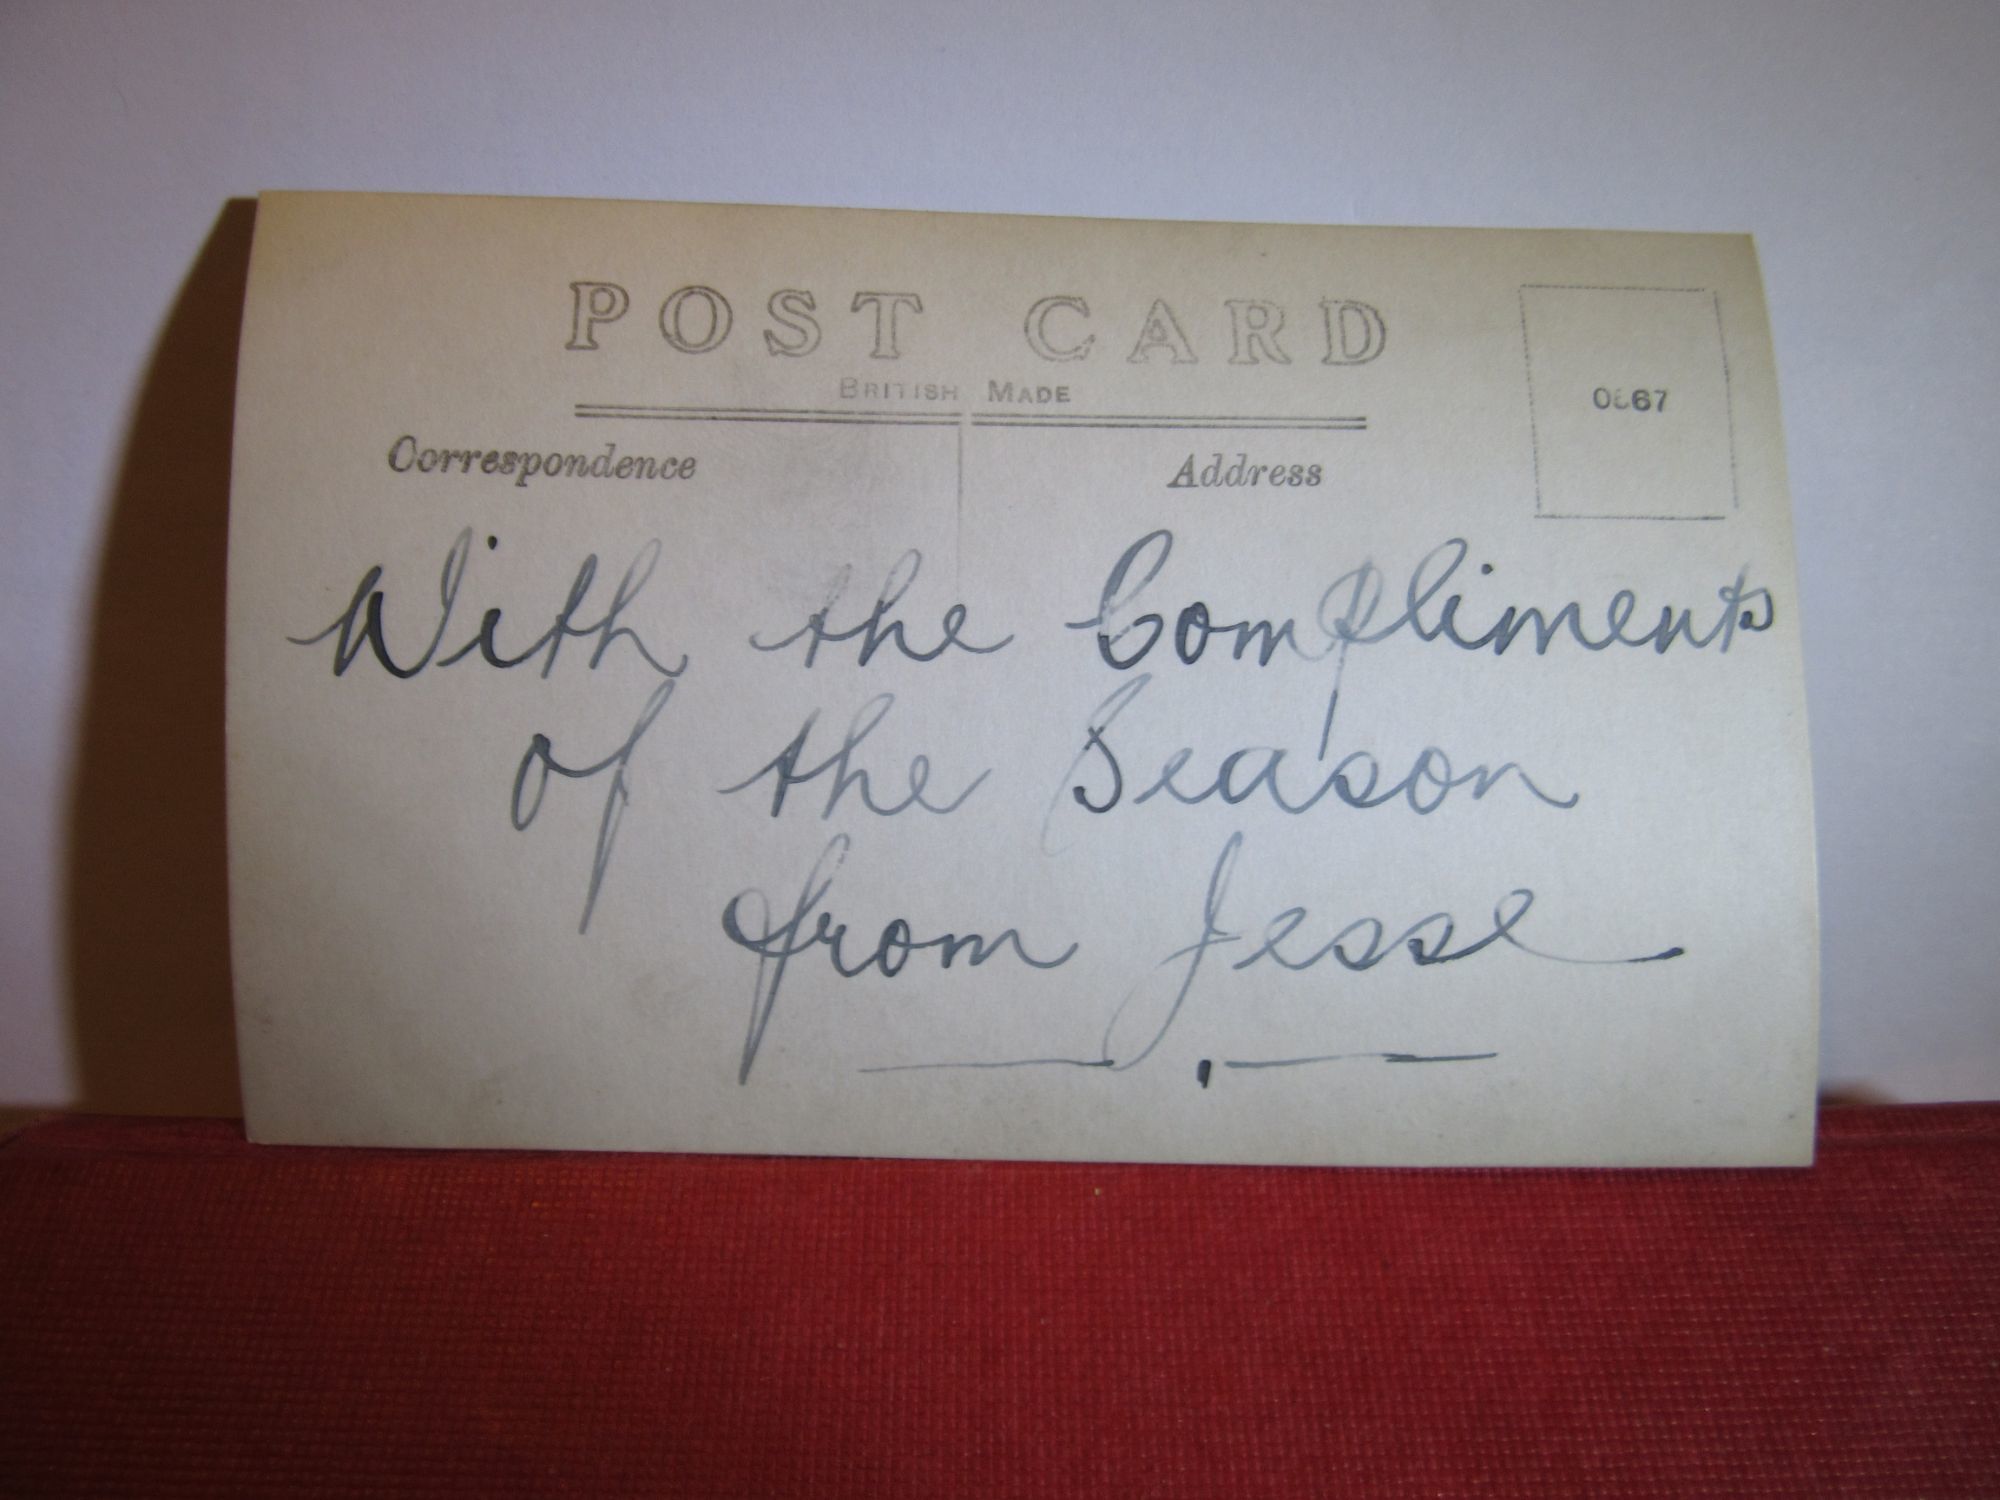 POST CARD
BRITISH MADE
Correspondence
Address
With the Compliments
of the Season
from Jesse